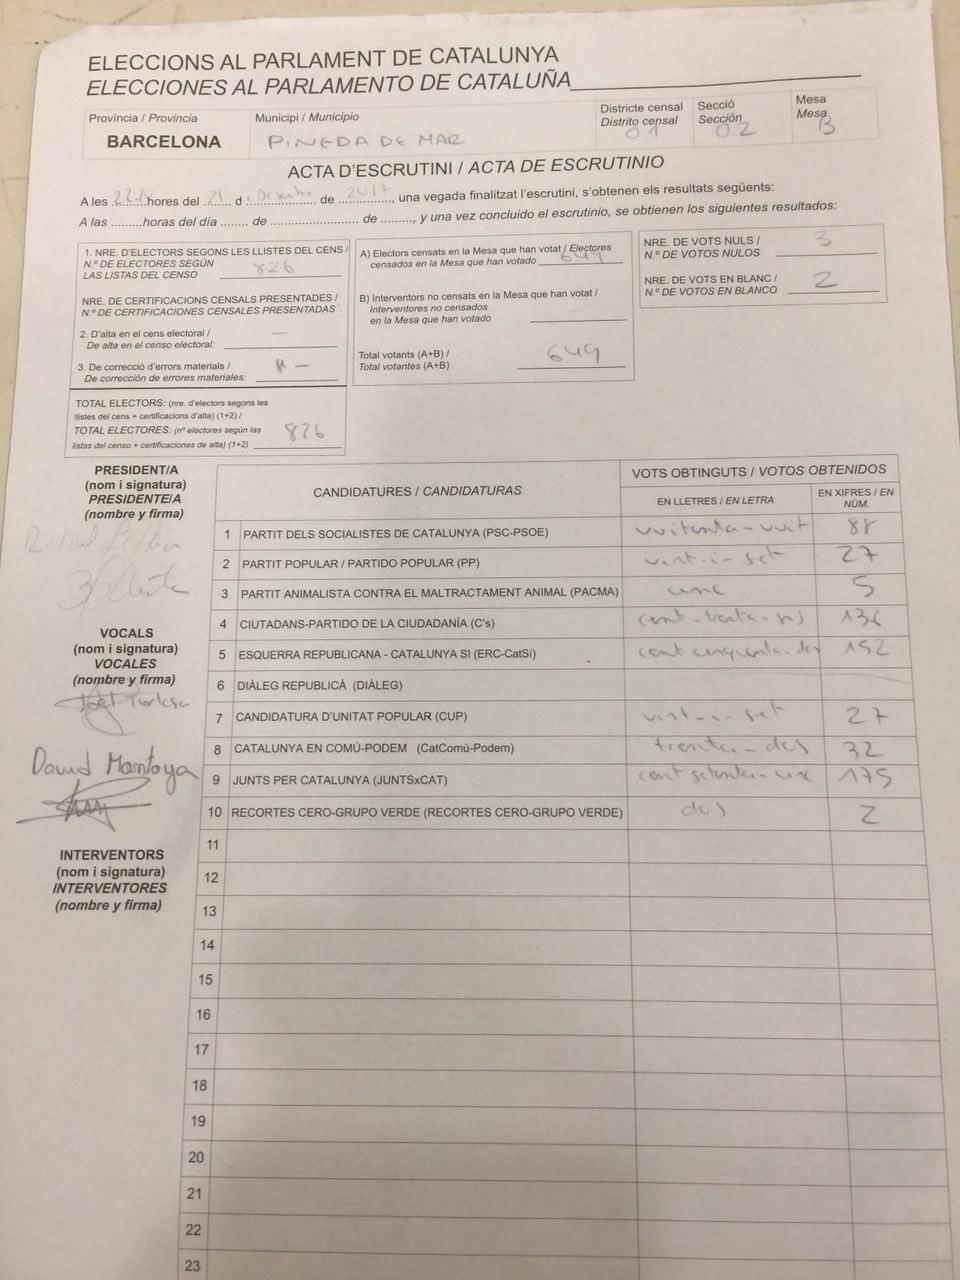 ELECCIONS AL PARLAMENT DE CATALUNYA
ELECCIONES AL PARLAMENTO DE CATALUÑA
Província / Provincia
BARCELONA
Municipi / Municipio
PINEDA DE MAR
Districte censal
Distrito censal
01
Secció
Sección
02
Mesa
Mesa
B
ACTA D'ESCRUTINI / ACTA DE ESCRUTINIO
A les ........hores del 21 d ........ de 2017, una vegada finalitzat l'escrutini, s'obtenen els resultats següents:
A las .........horas del día ....... de ...................... de ........, y una vez concluido el escrutinio, se obtienen los siguientes resultados:
1. NRE. D'ELECTORS SEGONS LES LLISTES DEL CENS /
N.º DE ELECTORES SEGÚN
LAS LISTAS DEL CENSO 826
NRE. DE CERTIFICACIONS CENSALS PRESENTADES /
N.º DE CERTIFICACIONES CENSALES PRESENTADAS
2. D'alta en el cens electoral /
De alta en el censo electoral: —
3. De correcció d'errors materials /
De corrección de errores materiales: —
TOTAL ELECTORS: (nre. d'electors segons les
llistes del cens + certificacions d'alta) (1+2) /
TOTAL ELECTORES: (nº electores según las
listas del censo + certificaciones de alta) (1+2) 826
A) Electors censats en la Mesa que han votat / Electores
censados en la Mesa que han votado 649
B) Interventors no censats en la Mesa que han votat /
Interventores no censados
en la Mesa que han votado
Total votants (A+B) /
Total votantes (A+B) 649
NRE. DE VOTS NULS /
N.º DE VOTOS NULOS 3
NRE. DE VOTS EN BLANC /
N.º DE VOTOS EN BLANCO 2
PRESIDENT/A
(nom i signatura)
PRESIDENTE/A
(nombre y firma)
VOCALS
(nom i signatura)
VOCALES
(nombre y firma)
Joel Tortosa
David Montoya
INTERVENTORS
(nom i signatura)
INTERVENTORES
(nombre y firma)
CANDIDATURES / CANDIDATURAS
VOTS OBTINGUTS / VOTOS OBTENIDOS
EN LLETRES / EN LETRA
EN XIFRES / EN
NÚM.
1 PARTIT DELS SOCIALISTES DE CATALUNYA (PSC-PSOE) vuitanta-vuit 88
2 PARTIT POPULAR / PARTIDO POPULAR (PP) vint-i-set 27
3 PARTIT ANIMALISTA CONTRA EL MALTRACTAMENT ANIMAL (PACMA) cinc 5
4 CIUTADANS-PARTIDO DE LA CIUDADANÍA (C's) cent-trenta-sis 136
5 ESQUERRA REPUBLICANA - CATALUNYA SI (ERC-CatSí) cent cinquanta-dos 152
6 DIÀLEG REPUBLICÀ (DIÀLEG)
7 CANDIDATURA D'UNITAT POPULAR (CUP) vint-i-set 27
8 CATALUNYA EN COMÚ-PODEM (CatComú-Podem) trenta-dos 32
9 JUNTS PER CATALUNYA (JUNTSxCAT) cent setanta-cinc 175
10 RECORTES CERO-GRUPO VERDE (RECORTES CERO-GRUPO VERDE) dos 2
11
12
13
14
15
16
17
18
19
20
21
22
23